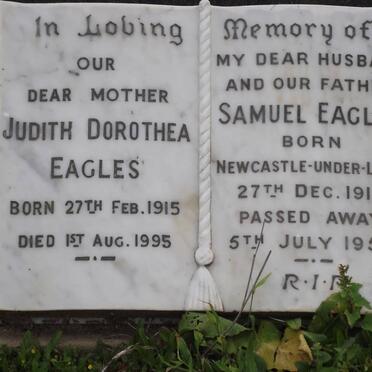 In Loving
OUR
DEAR MOTHER
JUDITH DOROTHEA
EAGLES
BORN 27TH FEB. 1915
DIED 1ST AUG. 1995
Memory of
MY DEAR HUSBA
AND OUR FATH
SAMUEL EAGL
BORN
NEWCASTLE-UNDER-L
27TH DEC. 191
PASSED AWAY
5TH JULY 195
R.I.P